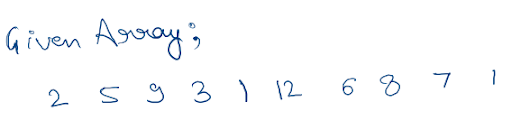 Given Array;
2 5 9 3 1 12 6 8 7 1